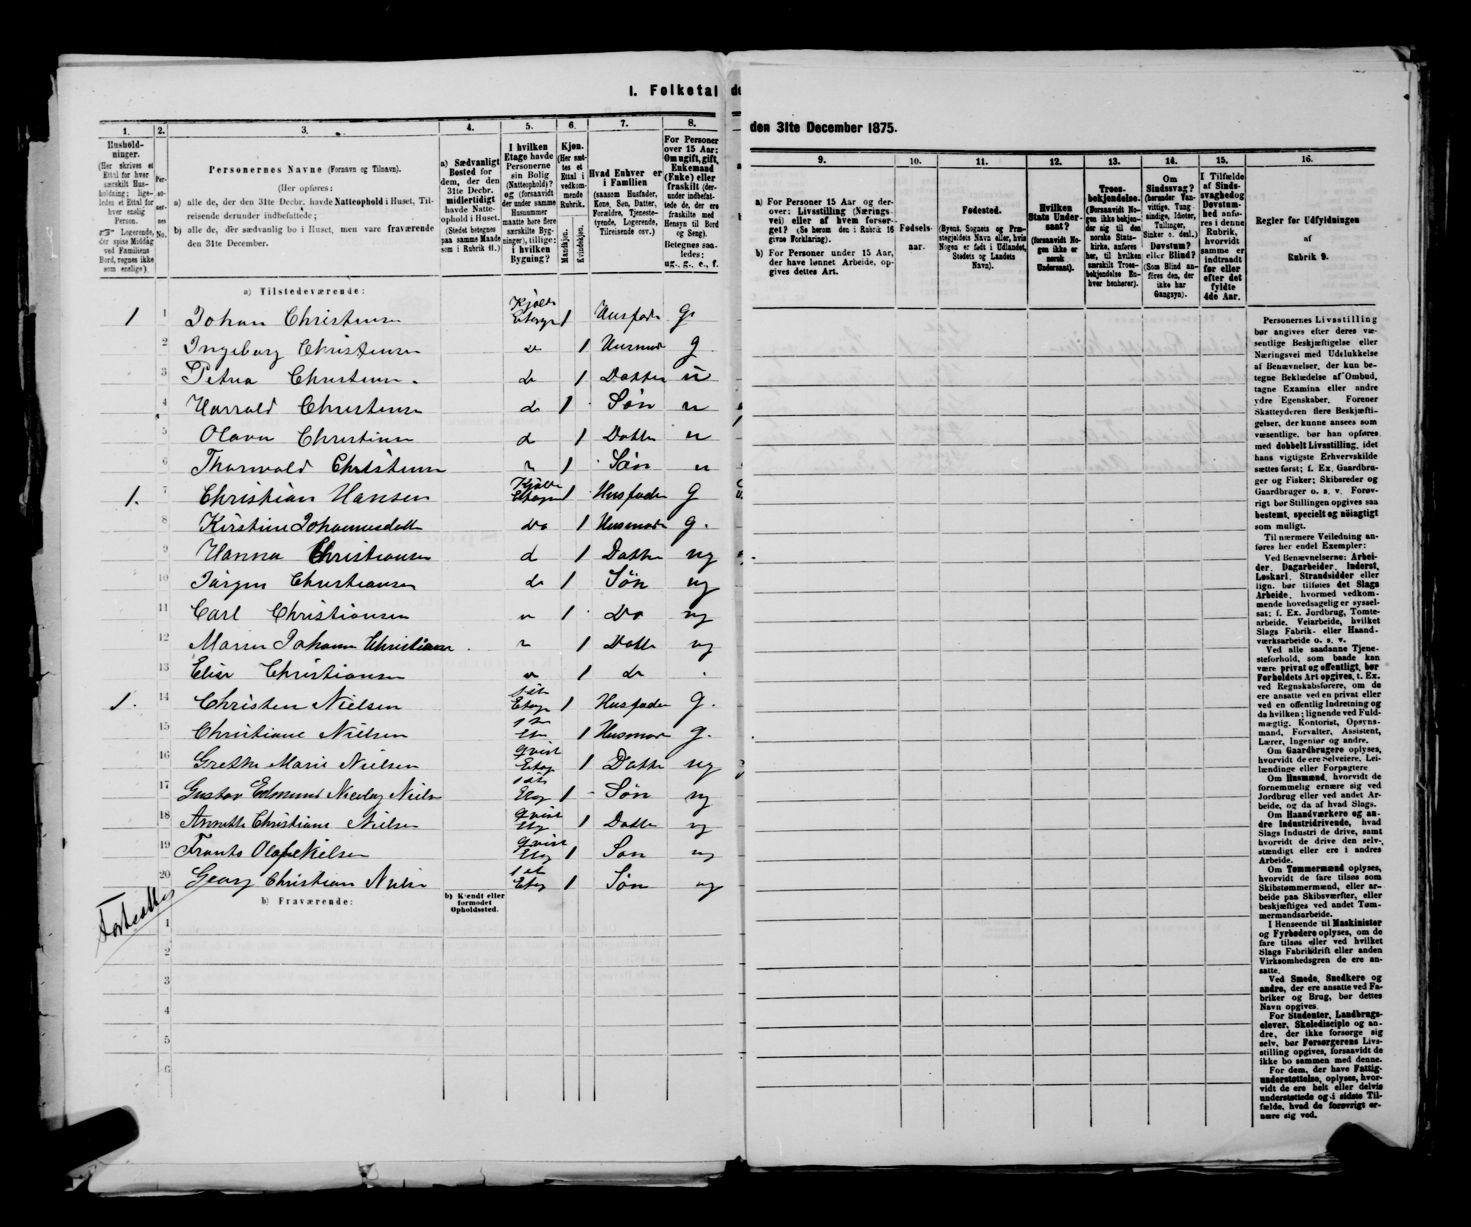 I. Folketal
1.
Hushold-
ninger.
(Her skrives et
Ettal for hver
særskilt Hus-
holdning; lige-
ledes et Ettal for
hver enslig
Person.
☞ Logerende,
der spise Middag
ved Familiens
Bord, regnes ikke
som enslige).
2.
Per-
so-
ner-
nes
No.
3.
Personernes Navne (Fornavn og Tilnavn).
(Her opføres:
a) alle de, der den 31te Decbr. havde Natteophold i Huset, Til-
reisende derunder indbefattede;
b) alle de, der sædvanlig bo i Huset, men vare fraværende
den 31te December.
4.
a) Sædvanligt
Bosted for
dem, der den
31te Decbr.
midlertidigt
havde Natte-
ophold i Huset.
(Stedet betegnes
paa samme Maade
som i Rubrik 11.)
5.
I hvilken
Etage havde
Personerne
sin Bolig
(Natteophold)?
og (forsaavidt
der under samme
Husnummer
maatte høre flere
særskilte Byg-
ninger), tillige:
i hvilken
Bygning?
6.
Kjøn.
(Her sæt-
tes et
Ettal i
vedkom-
mende
Rubrik.
Mandkjøn.
Kvindekjøn.
7.
Hvad Enhver er
i Familien
(saasom Husfader,
Kone, Søn, Datter,
Forældre, Tjeneste-
tyende, Logerende,
Tilreisende osv.)
8.
For Personer
over 15 Aar:
Om ugift, gift,
Enkemand
(Enke) eller
fraskilt (der-
under indbefat-
tede de, der ere
fraskilte med
Hensyn til Bord
og Seng).
Betegnes saa-
ledes:
ug., g., e., f.
a) Tilstedeværende:
1 1 Johan Christensen Kjelder Etage 1 Husfader g.
2 Ingeborg Christensen do 1 Husmor g
3 Petra Christensen do 1 Datter u
4 Harrald Christensen do 1 Søn u
5 Olava Christensen d 1 Datter u
6 Thorwald Christensen 1 Søn u
1. 7 Christian Hansen Kjelder Etagen 1 Husfader g
8 Kirstine Johannesdatter do 1 Husmoder g.
9 Hanna Christiansen d 1 Datter ug
10 Jørgen Christiansen do 1 Søn ug
11 Carl Christiansen 1 Do ug
12 Marin Johanne Christiansen 1 Datter ug
13 Elise Christiansen 1 do
1. 14 Christen Nielsen 1ste Etage 1 Husfader g.
15 Christiane Nielsen 1 Husmor g.
16 Grethe Marie Nielsen qvist Etag 1 Datter ug
17 Gustav Edmund Nicolay Nielsen 1ste Etag 1 Søn ug
18 Annette Christiane Nielsen qvist Etg 1 Datter ug
19 Frants Oluf Nielsen qvist Etag 1 Søn ug
20 Georg Christian Nielsen 1ste Etag 1 Søn ug
b) Fraværende:
b) Kjendt eller
formodet
Opholdssted.
1
2
3
4
5
6
den 31te December 1875.
9.
a) For Personer 15 Aar og der-
over: Livsstilling (Nærings-
vei) eller af hvem forsør-
get? (Se herom den i Rubrik 16
givne Forklaring).
b) For Personer under 15 Aar,
der have lønnet Arbeide, op-
gives dettes Art.
10.
Fødsels-
aar.
11.
Fødested.
(Byens, Sognets og Præ-
stegjeldets Navn eller, hvis
Nogen er født i Udlandet,
Stedets og Landets
Navn).
12.
Hvilken
Stats Under-
saat?
(forsaavidt No-
gen ikke er
norsk
Undersaat).
13.
Troes-
bekjendelse.
(Dersaavidt No-
gen ikke bekjen-
der sig til den
norske Stats-
kirke, anføres
her, til hvilken
særskilt Troes-
bekjendelse En-
hver henhører).
14.
Om
Sindssvag?
(herunder Van-
vittige, Tung-
sindige, Idioter,
Tullinger,
Sinker o. desl.)
Døvstum?
eller Blind?
(Som Blind an-
føres den, der
ikke har
Gangsyn).
15.
I Tilfælde
af Sinds-
svaghed og
Døvstum-
hed anfø-
res i denne
Rubrik,
hvorvidt
samme er
indtraadt
før eller
efter det
fyldte
4de Aar.
16.
Regler for Udfyldningen
af
Rubrik 9.
Personernes Livsstilling
bør angives efter deres væ-
sentlige Beskjæftigelse eller
Næringsvei med Udelukkelse
af Benævnelser, der kun be-
tegne Beklædelse af Ombud,
tagne Examina eller andre
ydre Egenskaber. Forener
Skatteyderen flere Beskjæfti-
gelser, der kunne ansees som
væsentlige, bør han opføres
med dobbelt Livsstilling, idet
hans vigtigste Erhvervskilde
sættes først; f. Ex. Gaardbru-
ger og Fisker; Skibsreder og
Gaardbruger o. s. v. Forøv-
rigt bør Stillingen opgives saa
bestemt, specielt og nøiagtigt
som muligt.
Til nærmere Veiledning an-
føres her endel Exempler:
Ved Benævnelserne: Arbei-
der, Dagarbeider, Inderst,
Løskarl, Strandsidder eller
lign. bør tilføies det Slags
Arbeide, hvormed vedkom-
mende hovedsagelig er syssel-
sat; f. Ex. Jordbrug, Tomte-
arbeide, Veiarbeide, hvilket
Slags Fabrik- eller Haand-
værksarbeide o. s. v.
Ved alle saadanne Tjene-
steforhold, som baade kan
være privat og offentligt, bør
Forholdets Art opgives, t. Ex.
ved Regnskabsførere, om de
ere ansatte ved en privat eller
ved en offentlig Indretning og
da hvilken; lignende ved Fuld-
mægtig, Kontorist, Opsyns-
mand, Forvalter, Assistent,
Lærer, Ingeniør og andre.
Om Gaardbrugere oplyses,
hvorvidt de ere Selveiere, Lei-
lændinge eller Forpagtere.
Om Husmænd, hvorvidt de
fornemmelig ernære sig ved
Jordbrug eller ved andet Ar-
beide, og da af hvad Slags.
Om Haandværkere og an-
dre Industridrivende, hvad
Slags Industri de drive, samt
hvorvidt de drive den selv-
stændigt eller ere i andres
Arbeide.
Om Tømmermænd oplyses,
hvorvidt de fare tilsøs som
Skibstømmermænd, eller ar-
beide paa Skibsværfter, eller
beskjæftiges ved andet Tøm-
mermandsarbeide.
I Henseende til Maskinister
og Fyrbødere oplyses, om de
fare tilsøs eller ved hvilket
Slags Fabrikdrift eller anden
Virksomhedsgren de ere an-
satte.
Ved Smede, Snedkere og
andre, der ere ansatte ved Fa-
briker og Brug, bør dettes
Navn opgives.
For Studenter, Landbrugs-
elever, Skoledisciple og an-
dre, der ikke forsørge sig
selv, bør Forsørgerens Livs-
stilling opgives, forsaavidt de
ikke bo sammen med denne.
For dem, der have Fattig-
understøttelse, oplyses, hvor-
vidt de ere helt eller delvis
understøttede og i sidste Til-
fælde, hvad de forøvrigt er-
nære sig ved.